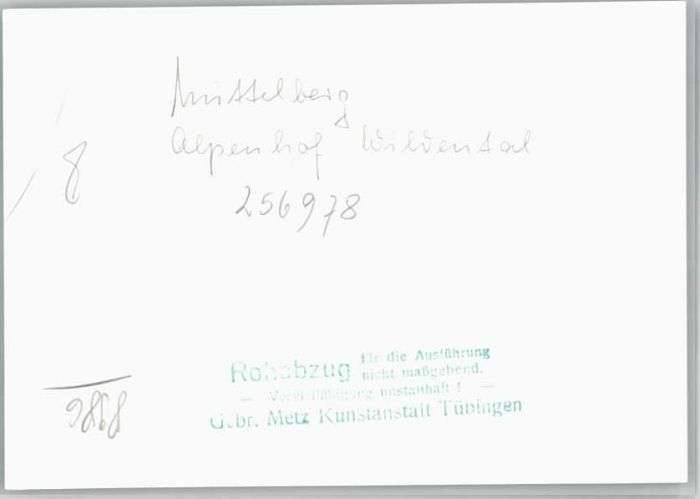 Mittelberg
Alpenhof Wildental
256978
8
Rohabzug für die Ausführung
nicht maßgebend.
— Vervielfältigung unstatthaft! —
Gebr. Metz Kunstanstalt Tübingen